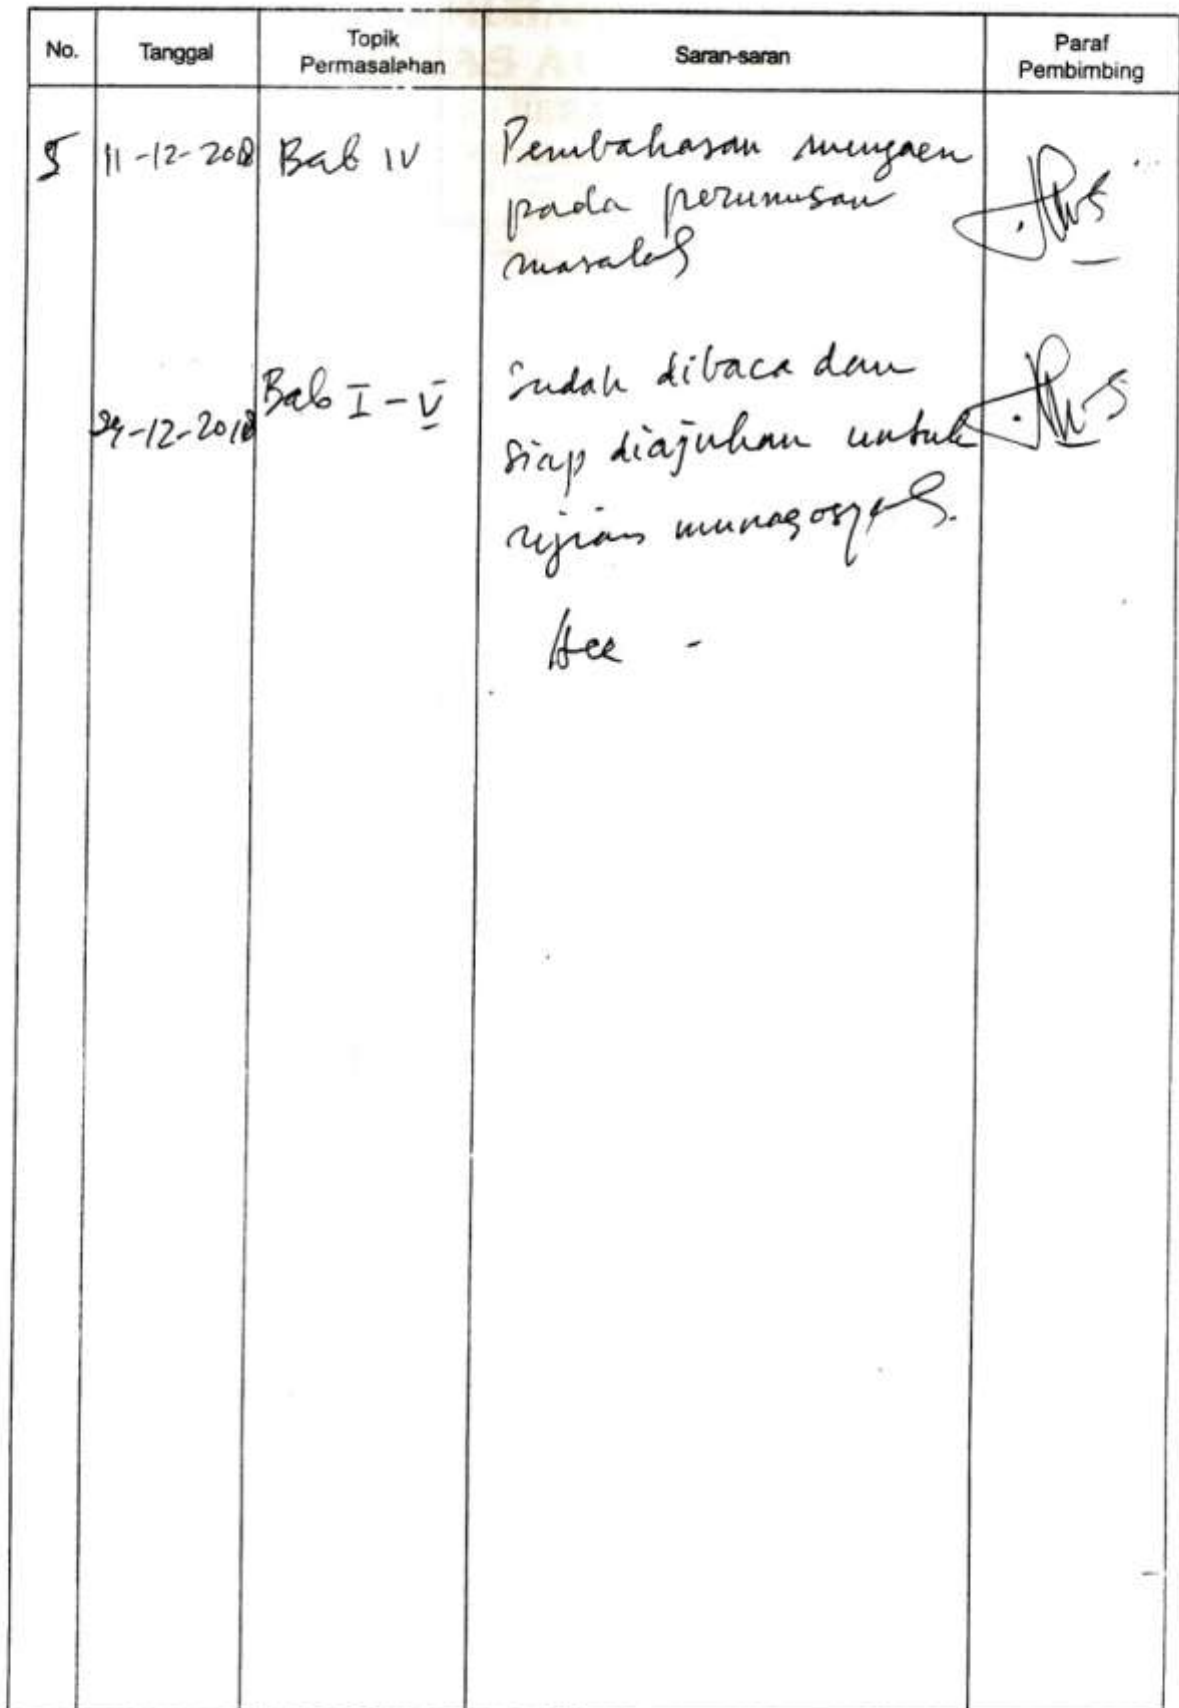 No. Tanggal Topik Permasalahan Saran-saran Paraf Pembimbing
5 11-12-2018 Bab IV Pembahasan mengacu
pada perumusan
masalah
24-12-2018 Bab I - V Sudah dibaca dan
siap diajukan untuk
ujian munaqosyah.
Acc -